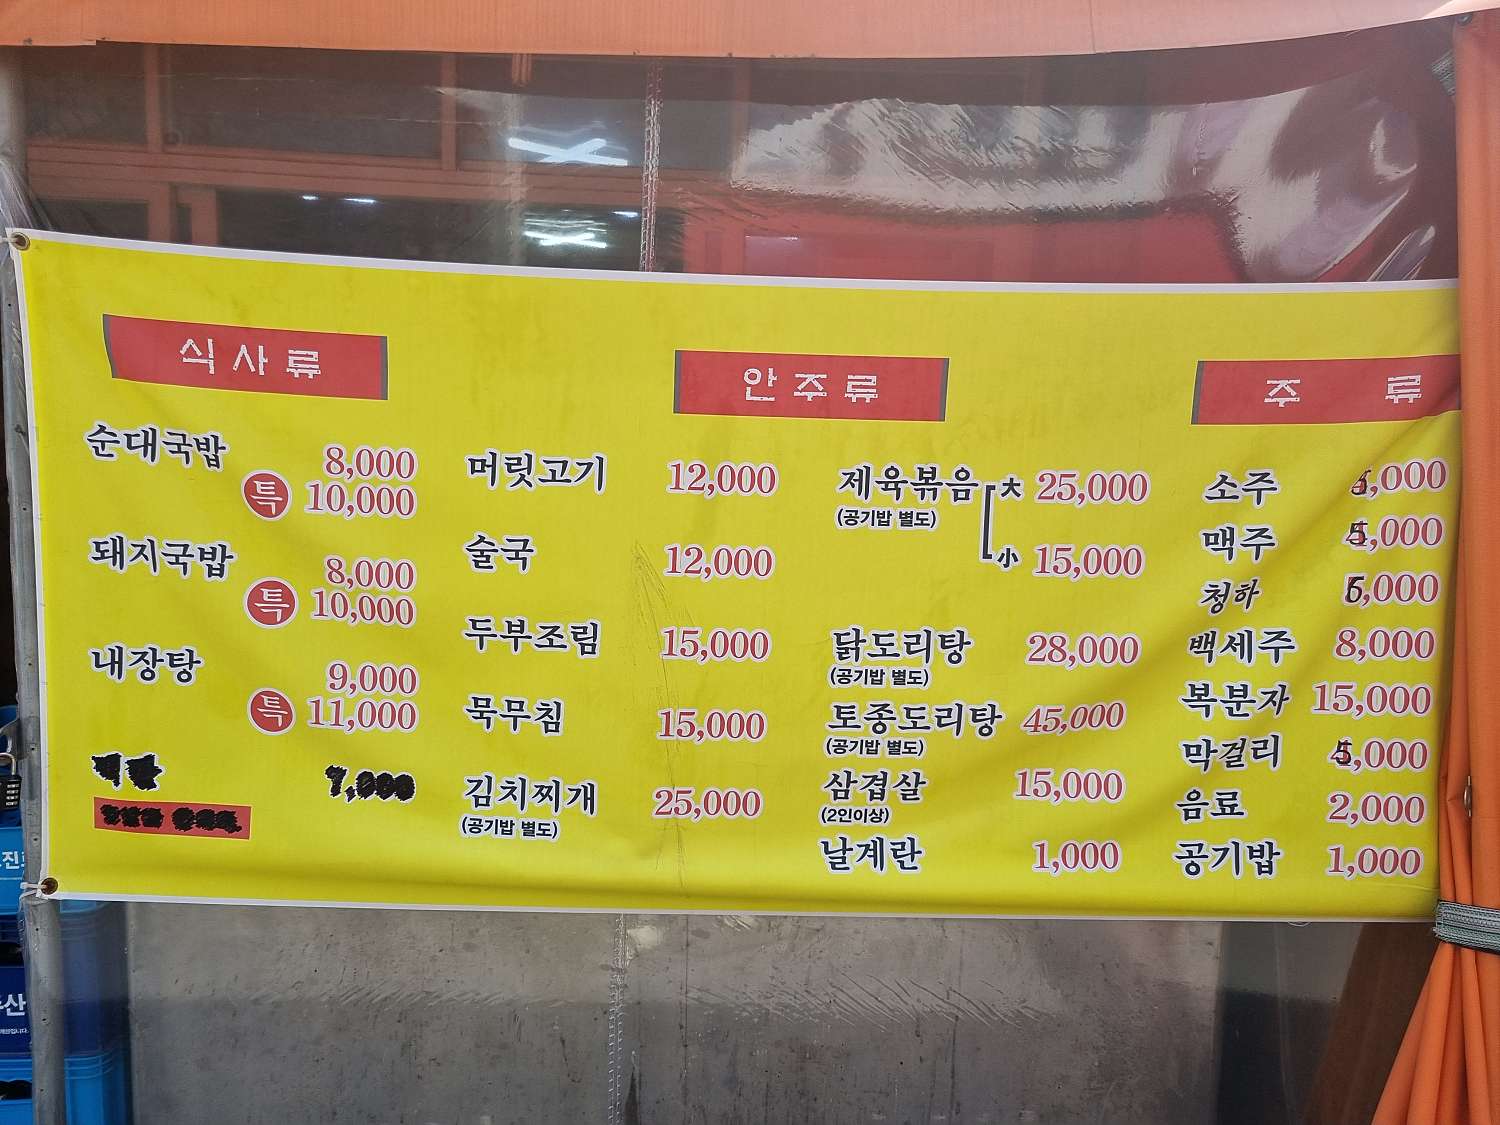 식사류
순대국밥 8,000
특 10,000
돼지국밥 8,000
특 10,000
내장탕 9,000
특 11,000
7,000
안주류
머릿고기 12,000
술국 12,000
두부조림 15,000
묵무침 15,000
김치찌개 25,000
(공기밥 별도)
제육볶음 大 25,000
(공기밥 별도)
小 15,000
닭도리탕 28,000
(공기밥 별도)
토종도리탕 45,000
(공기밥 별도)
삼겹살 15,000
(2인이상)
날계란 1,000
주류
소주
맥주 5,000
청하 6,000
백세주 8,000
복분자 15,000
막걸리 5,000
음료 2,000
공기밥 1,000